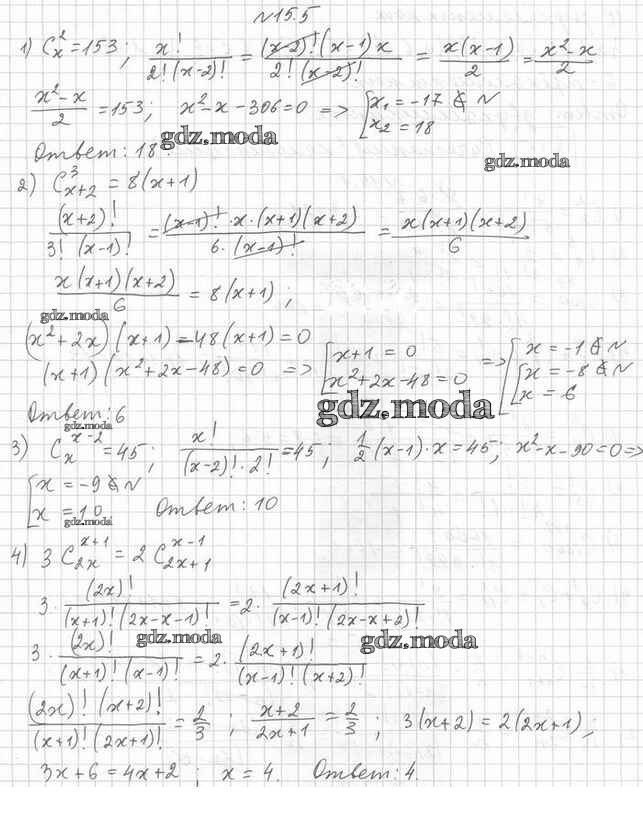 №15.5
1) C_x^2 = 153; x!/(2!(x-2)!) = ((x-2)!(x-1)x)/(2!(x-2)!) = x(x-1)/2 = (x²-x)/2
(x²-x)/2 = 153; x²-x-306=0 => [x₁ = -17 ∉ N
x₂ = 18
gdz.moda
Ответ: 18.
gdz.moda
2) C_{x+2}^3 = 8(x+1)
(x+2)!/(3!(x-1)!) = ((x-1)!·x·(x+1)(x+2))/(6·(x-1)!) = x(x+1)(x+2)/6
x(x+1)(x+2)/6 = 8(x+1);
gdz.moda
(x²+2x)(x+1)-48(x+1)=0
(x+1)(x²+2x-48)=0 => [x+1=0
x²+2x-48=0 => [x = -1 ∉ N
[x = -8 ∉ N
x = 6
gdz.moda
Ответ: 6
gdz.moda
3) C_x^{x-2} = 45; x!/((x-2)!·2!) = 45; 1/2(x-1)·x = 45; x²-x-90=0 =>
[x = -9 ∉ N
x = 10 Ответ: 10
gdz.moda
4) 3 C_{2x}^{x+1} = 2 C_{2x+1}^{x-1}
3·(2x)!/((x+1)!(2x-x-1)!) = 2·(2x+1)!/((x-1)!(2x-x+2)!)
gdz.moda
gdz.moda
3·(2x)!/((x+1)!(x-1)!) = 2·(2x+1)!/((x-1)!(x+2)!)
(2x)!(x+2)!/((x+1)!(2x+1)!) = 2/3; (x+2)/(2x+1) = 2/3; 3(x+2) = 2(2x+1);
3x+6 = 4x+2; x = 4. Ответ: 4.